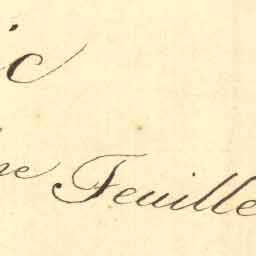 ic
ne Feuille